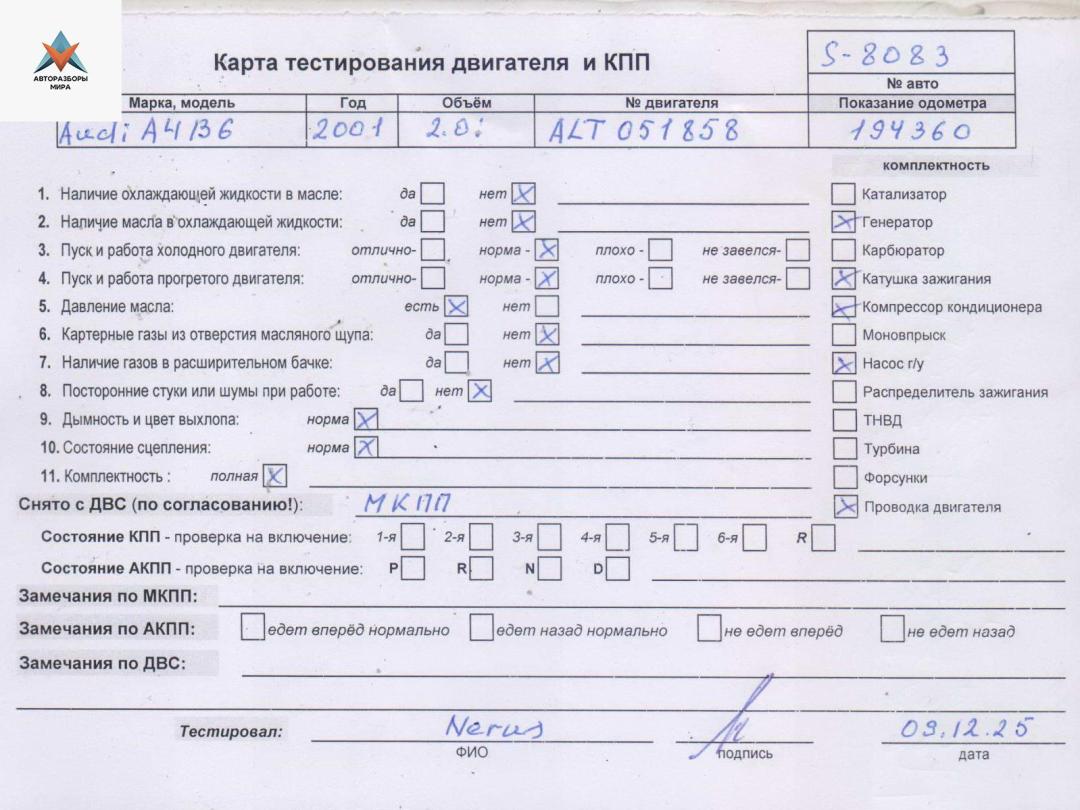 АВТОРАЗБОРЫ МИРА
Карта тестирования двигателя и КПП
S-8083
№ авто
Марка, модель Год Объём № двигателя Показание одометра
Audi A4 B6 2001 2.0i ALT 051858 194360
комплектность
1. Наличие охлаждающей жидкости в масле: да нет X
Катализатор
2. Наличие масла в охлаждающей жидкости: да нет X
X Генератор
3. Пуск и работа холодного двигателя: отлично- норма - X плохо - не завелся-
Карбюратор
4. Пуск и работа прогретого двигателя: отлично- норма - X плохо - не завелся-
X Катушка зажигания
5. Давление масла: есть X нет
X Компрессор кондиционера
6. Картерные газы из отверстия масляного щупа: да нет X
Моновпрыск
7. Наличие газов в расширительном бачке: да нет X
X Насос г/у
8. Посторонние стуки или шумы при работе: да нет X
Распределитель зажигания
9. Дымность и цвет выхлопа: норма X
ТНВД
10. Состояние сцепления: норма X
Турбина
11. Комплектность : полная X
Форсунки
Снято с ДВС (по согласованию!): МКПП
X Проводка двигателя
Состояние КПП - проверка на включение: 1-я 2-я 3-я 4-я 5-я 6-я R
Состояние АКПП - проверка на включение: P R N D
Замечания по МКПП:
Замечания по АКПП: едет вперёд нормально едет назад нормально не едет вперёд не едет назад
Замечания по ДВС:
Тестировал: Nerus 09.12.25
ФИО подпись дата